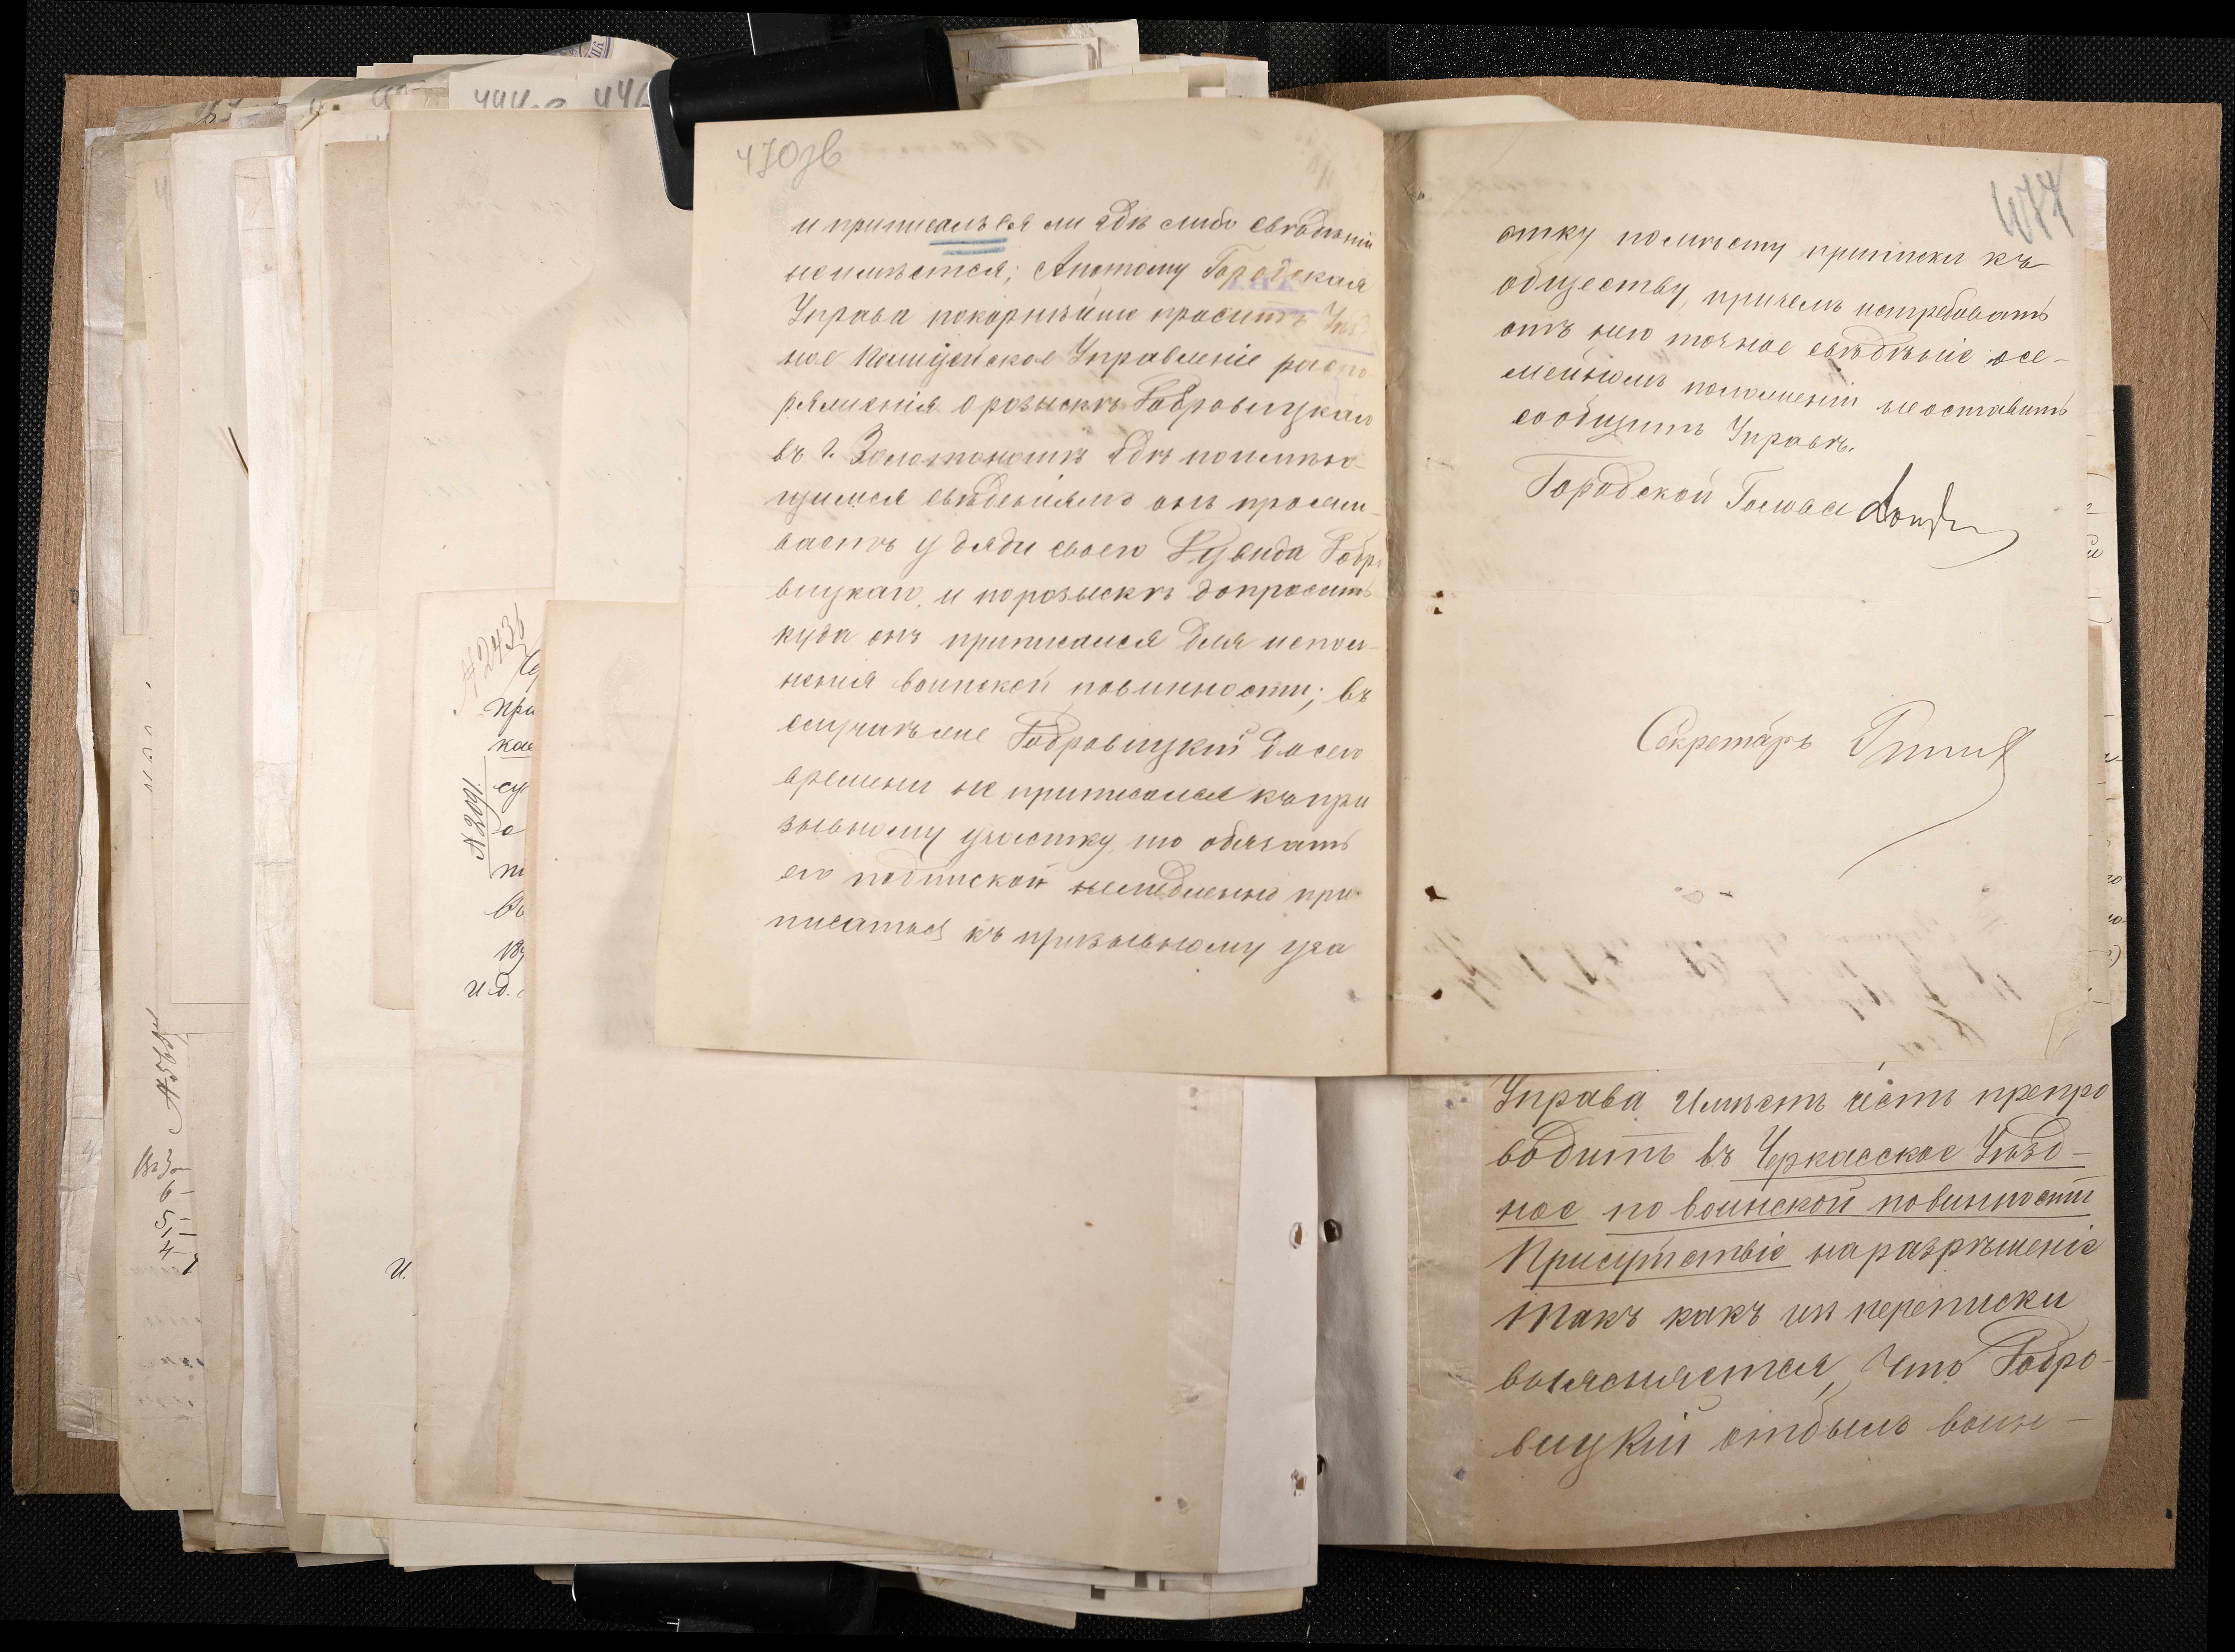 470зв
и приписался ли гдѣ либо свѣдѣній
неимѣется; Апотому Городская
Управа покорнѣйше проситъ Уѣзд
ное Полицейское Управленіе распо
ряженія о розыскѣ Бобровицкаго
въ г. Золотоношѣ гдѣ поимѣю-
щимся свѣдѣніямъ онъ прожи-
ваетъ у дяди своего Рувида Бобро
вицкаго, и порозыскѣ допросить
куда онъ приписался для испол-
ненія воинской повинности; въ
случаѣ же Бобровицкій до сего
времени не приписался къ при
зывному участку, то обязать
его подпиской немедленно при-
писаться къ призывному уча
477
стку помѣсту приписки къ
обществу, причемъ истребовать
отъ него точное свѣдѣніе осе-
мейномъ положеніи неоставить
сообщить Управѣ.
Городской Голова
Секретарь
Управа Имѣетъ честь препро
водить въ Черкасское Уѣзд-
ное по воинской повинности
Присутствіе наразрѣшеніе
такъ какъ изъ переписки
выясняется, что Бобро-
вицкій отбылъ воин-
№ 2436
при
№ 2091
су
о
въ
и.д.
И.